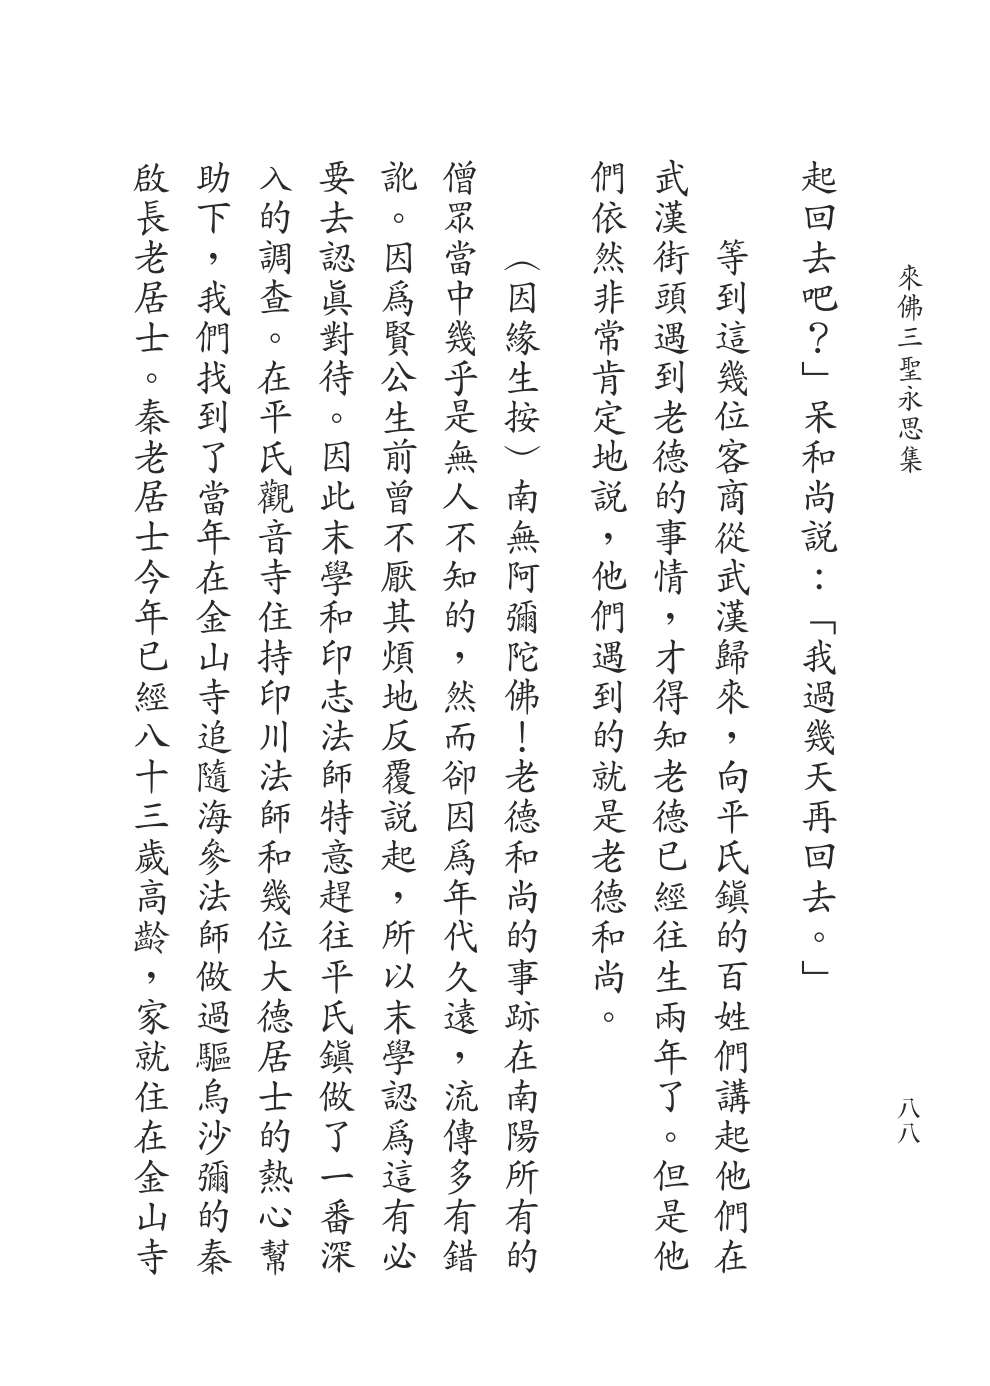 來佛三聖永思集
八八
起回去吧？」呆和尚説：「我過幾天再回去。」
等到這幾位客商從武漢歸來，向平氏鎭的百姓們講起他們在
武漢街頭遇到老德的事情，才得知老德已經往生兩年了。但是他
們依然非常肯定地説，他們遇到的就是老德和尚。
（因緣生按）南無阿彌陀佛！老德和尚的事跡在南陽所有的
僧眾當中幾乎是無人不知的，然而卻因爲年代久遠，流傳多有錯
訛。因爲賢公生前曾不厭其煩地反覆説起，所以末學認爲這有必
要去認眞對待。因此末學和印志法師特意趕往平氏鎭做了一番深
入的調查。在平氏觀音寺住持印川法師和幾位大德居士的熱心幫
助下，我們找到了當年在金山寺追隨海參法師做過驅烏沙彌的秦
啟長老居士。秦老居士今年已經八十三歲高齡，家就住在金山寺